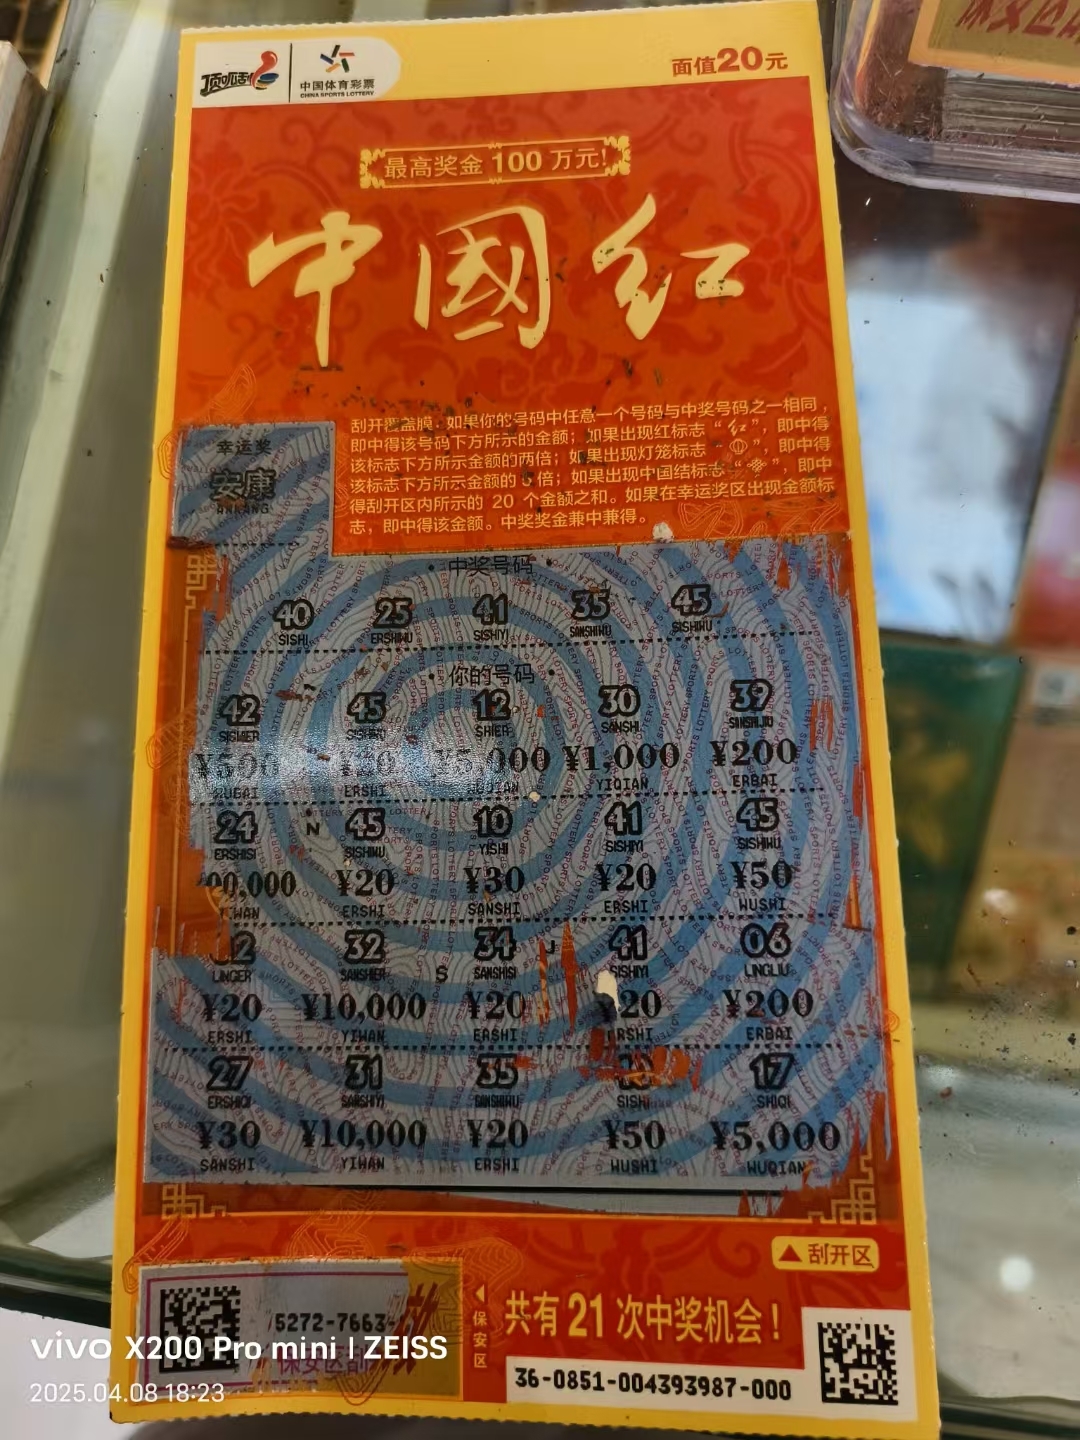 顶呱刮
中国体育彩票
CHINA SPORTS LOTTERY
面值20元
最高奖金100万元!
中國红
刮开覆盖膜,如果你的号码中任意一个号码与中奖号码之一相同,
即中得该号码下方所示的金额;如果出现红标志“红”,即中得
该标志下方所示金额的两倍;如果出现灯笼标志“ ”,即中得
该标志下方所示金额的 倍;如果出现中国结标志“ ”,即中
得刮开区内所示的 20 个金额之和。如果在幸运奖区出现金额标
志,即中得该金额。中奖奖金兼中兼得。
幸运奖
安康
ANKANG
中奖号码
40 25 41 35 45
SISHI ERSHIWU SISHIYI SANSHIWU SISHIWU
你的号码
42 45 12 30 39
SISHIER SISHIWU SHIER SANSHI SANSHIJIU
¥500 ¥20 ¥5,000 ¥1,000 ¥200
WUBAI ERSHI WUQIAN YIQIAN ERBAI
24 N 45 10 41 45
ERSHISI SISHIWU YISHI SISHIYI SISHIWU
00,000 ¥20 ¥30 ¥20 ¥50
WAN ERSHI SANSHI ERSHI WUSHI
2 32 34 J 41 06
LINGER SANSHIER S SANSHISI SISHIYI LINGLIU
¥20 ¥10,000 ¥20 20 ¥200
ERSHI YIWAN ERSHI RSHI ERBAI
27 31 35 17
ERSHIQI SANSHIYI SANSHIWU SISHI SHIQI
¥30 ¥10,000 ¥20 ¥50 ¥5,000
SANSHI YIWAN ERSHI WUSHI WUQIAN
▲刮开区
5272-7663-
保安区
共有21次中奖机会!
36-0851-004393987-000
vivo X200 Pro mini | ZEISS
2025.04.08 18:23